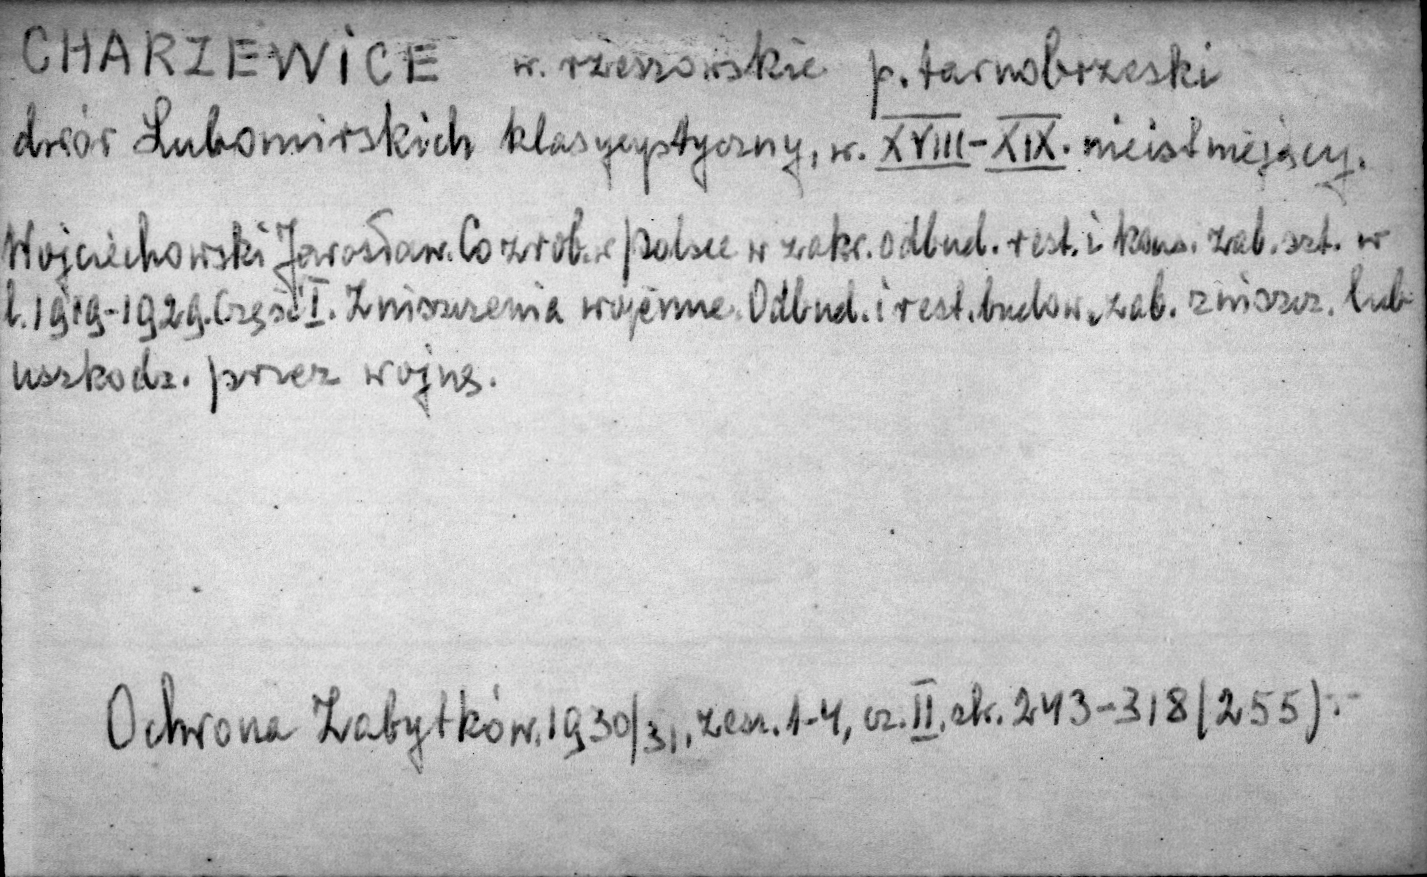 CHARZEWICE w. rzeszowskie p. tarnobrzeski
dwór Lubomirskich klasycystyczny, w. XVIII-XIX. nieistniejący.
Wojciechowski Jarosław. Co zrob. w Polsce w zakr. odbud. rest. i kons. zab. szt. w
l. 1919-1929. Część I. Zniszczenia wojenne. Odbud. i rest. budow. zab. zniszcz. lub
uszkodz. przez wojnę.
Ochrona Zabytków. 1930/31, zesz. 1-4, cz. II, str. 243-318 (255).